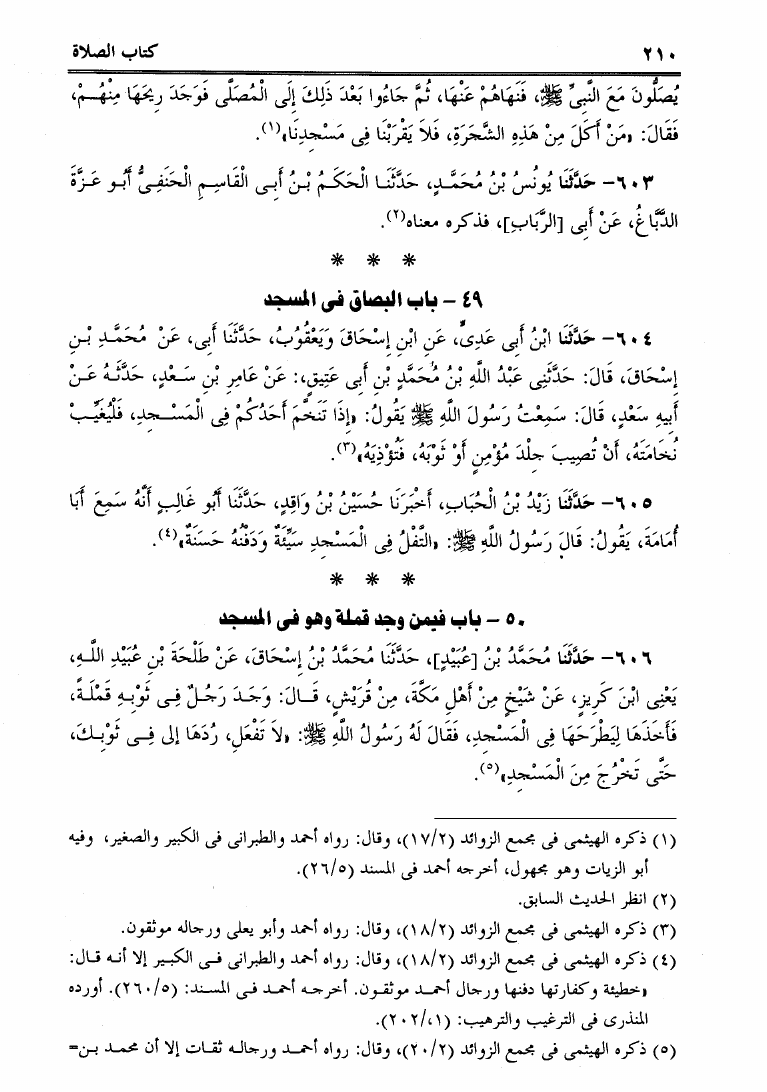 ٢١٠ كتاب الصلاة
يُصَلُّونَ مَعَ النَّبِيِّ ﷺ، فَنَهَاهُمْ عَنْهَا، ثُمَّ جَاءُوا بَعْدَ ذَلِكَ إِلَى الْمُصَلَّى فَوَجَدَ رِيحَهَا مِنْهُمْ،
فَقَالَ: «مَنْ أَكَلَ مِنْ هَذِهِ الشَّجَرَةِ، فَلاَ يَقْرَبْنَا فِى مَسْجِدِنَا»(١).
٦٠٣- حَدَّثَنَا يُونُسُ بْنُ مُحَمَّدٍ، حَدَّثَنَا الْحَكَمُ بْنُ أَبِى الْقَاسِمِ الْحَنَفِىُّ أَبُو عَزَّةَ
الدَّبَّاغُ، عَنْ أَبِى [الرَّبَابِ]، فذكره معناه(٢).
* * *
٤٩ - باب البصاق فى المسجد
٦٠٤- حَدَّثَنَا ابْنُ أَبِى عَدِىٍّ، عَنِ ابْنِ إِسْحَاقَ وَيَعْقُوبُ، حَدَّثَنَا أَبِى، عَنْ مُحَمَّدِ بْنِ
إِسْحَاقَ، قَالَ: حَدَّثَنِى عَبْدُ اللَّهِ بْنُ مُحَمَّدِ بْنِ أَبِى عَتِيقٍ،: عَنْ عَامِرِ بْنِ سَعْدٍ، حَدَّثَهُ عَنْ
أَبِيهِ سَعْدٍ، قَالَ: سَمِعْتُ رَسُولَ اللَّهِ ﷺ يَقُولُ: «إِذَا تَنَخَّمَ أَحَدُكُمْ فِى الْمَسْجِدِ، فَلْيُغَيِّبْ
نُخَامَتَهُ، أَنْ تُصِيبَ جِلْدَ مُؤْمِنٍ أَوْ ثَوْبَهُ، فَتُؤْذِيَهُ»(٣).
٦٠٥- حَدَّثَنَا زَيْدُ بْنُ الْحُبَابِ، أَخْبَرَنَا حُسَيْنُ بْنُ وَاقِدٍ، حَدَّثَنَا أَبُو غَالِبٍ أَنَّهُ سَمِعَ أَبَا
أُمَامَةَ، يَقُولُ: قَالَ رَسُولُ اللَّهِ ﷺ: «التَّفْلُ فِى الْمَسْجِدِ سَيِّئَةٌ وَدَفْنُهُ حَسَنَةٌ»(٤).
* * *
٥٠ - باب فيمن وجد قملة وهو فى المسجد
٦٠٦- حَدَّثَنَا مُحَمَّدُ بْنُ [عُبَيْدٍ]، حَدَّثَنَا مُحَمَّدُ بْنُ إِسْحَاقَ، عَنْ طَلْحَةَ بْنِ عُبَيْدِ اللَّهِ،
يَعْنِى ابْنَ كَرِيزٍ، عَنْ شَيْخٍ مِنْ أَهْلِ مَكَّةَ، مِنْ قُرَيْشٍ، قَالَ: وَجَدَ رَجُلٌ فِى ثَوْبِهِ قَمْلَةً،
فَأَخَذَهَا لِيَطْرَحَهَا فِى الْمَسْجِدِ، فَقَالَ لَهُ رَسُولُ اللَّهِ ﷺ: «لاَ تَفْعَلِ، رُدَّهَا إِلى فِى ثَوْبِكَ،
حَتَّى تَخْرُجَ مِنَ الْمَسْجِدِ»(٥).
(١) ذكره الهيثمى فى مجمع الزوائد (١٧/٢)، وقال: رواه أحمد والطبرانى فى الكبير والصغير، وفيه
أبو الزيات وهو مجهول، أخرجه أحمد فى المسند (٢٦/٥).
(٢) انظر الحديث السابق.
(٣) ذكره الهيثمى فى مجمع الزوائد (١٨/٢)، وقال: رواه أحمد وأبو يعلى ورجاله موثقون.
(٤) ذكره الهيثمى فى مجمع الزوائد (١٨/٢)، وقال: رواه أحمد والطبرانى فى الكبير إلا أنه قال:
«خطيئة وكفارتها دفنها ورجال أحمد موثقون. أخرجه أحمد فى المسند: (٢٦٠/٥). أورده
المنذرى فى الترغيب والترهيب: (٢٠٢/،١).
(٥) ذكره الهيثمى فى مجمع الزوائد (٢٠/٢)، وقال: رواه أحمد ورجاله ثقات إلا أن محمد بن=